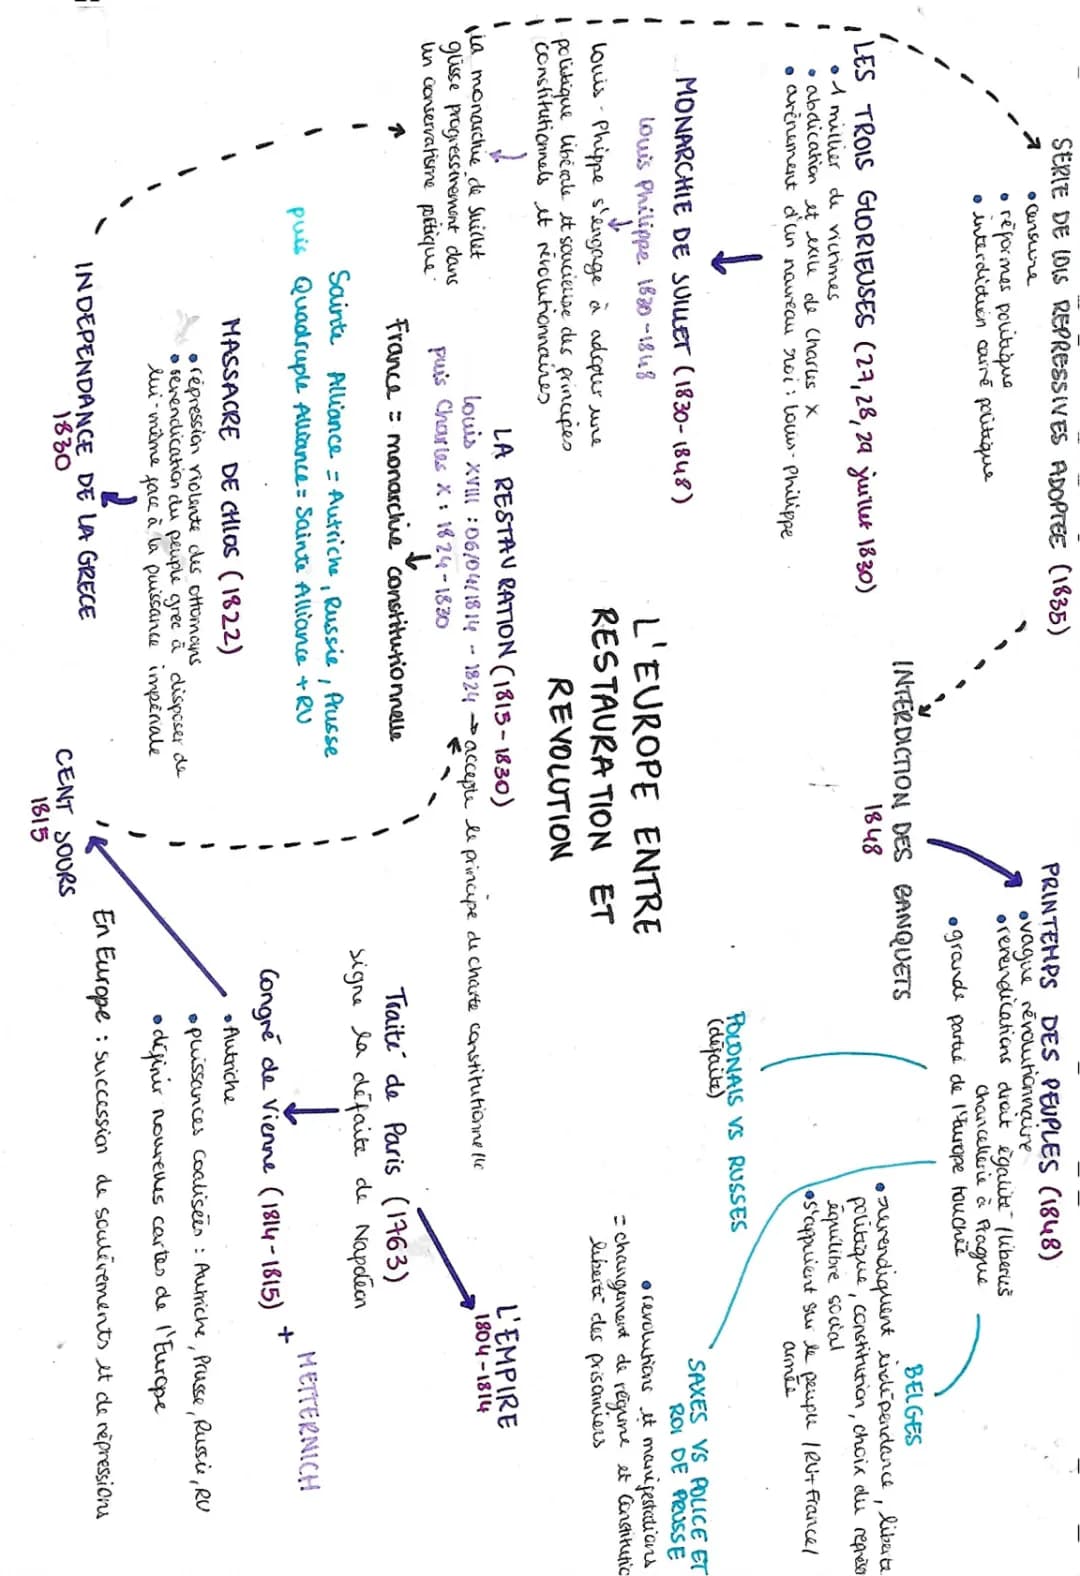 L'EUROPE ENTRE
RESTAURATION ET
REVOLUTION
SERIE DE LOIS REPRESSIVES ADOPTEE (1835)
• censure
• réformes politique
• interdiction carné politique
LES TROIS GLORIEUSES (27, 28, 29 juillet 1830)
• 1 millier de victimes
• abdication et exile de Charles X
• avènement d'un nouveau roi : Louis-Philippe
MONARCHIE DE JUILLET (1830-1848)
Louis Philippe. 1830-1848
Louis-Phippe s'engage à adopter une
politique libérale et soucieuse des principes
constitutionnels et révolutionnaires
La monarchie de Juillet
glisse progressivement dans
un conservatisme politique
INTERDICTION DES BANQUETS
1848
PRINTEMPS DES PEUPLES (1848)
• vague révolutionnaire
• revendications droit égalité / libertés
chancellerie à Prague
• grande partie de l'Europe touchée
BELGES
• revendiquent indépendance, liberté
politique, constitution, choix du
équilibre social
• s'appuient sur le peuple /RU+France/
armée
POLONAIS VS RUSSES
(défaite)
SAXES VS POLICE ET
ROI DE PRUSSE
• revolutions et manifestations
= changement de régime et
liberté des prisonniers
LA RESTAURATION (1815-1830)
Louis XVIII : 06/04/1814 - 1824 → accepte le principe de charte constitutionnelle
puis Charles X : 1824-1830
France = monarchie constitutionnelle
Sainte Alliance = Autriche, Russie, Prusse
puis Quadruple Alliance = Sainte Alliance + RU
MASSACRE DE CHIOS (1822)
• répression violente des ottomans
• revendication du peuple grec à disposer de
lui-même face à la puissance impériale
INDEPENDANCE DE LA GRECE
1830
L'EMPIRE
1804-1814
Traité de Paris (1763)
signe la défaite de Napoléon
Congré de Vienne (1814-1815) + METTERNICH
• Autriche
• puissances coalisées : Autriche, Prusse, Russie, RU
• définir nouvelles cartes de l'Europe
CENT JOURS
1815
En Europe : succession de soulèvements et de répressions